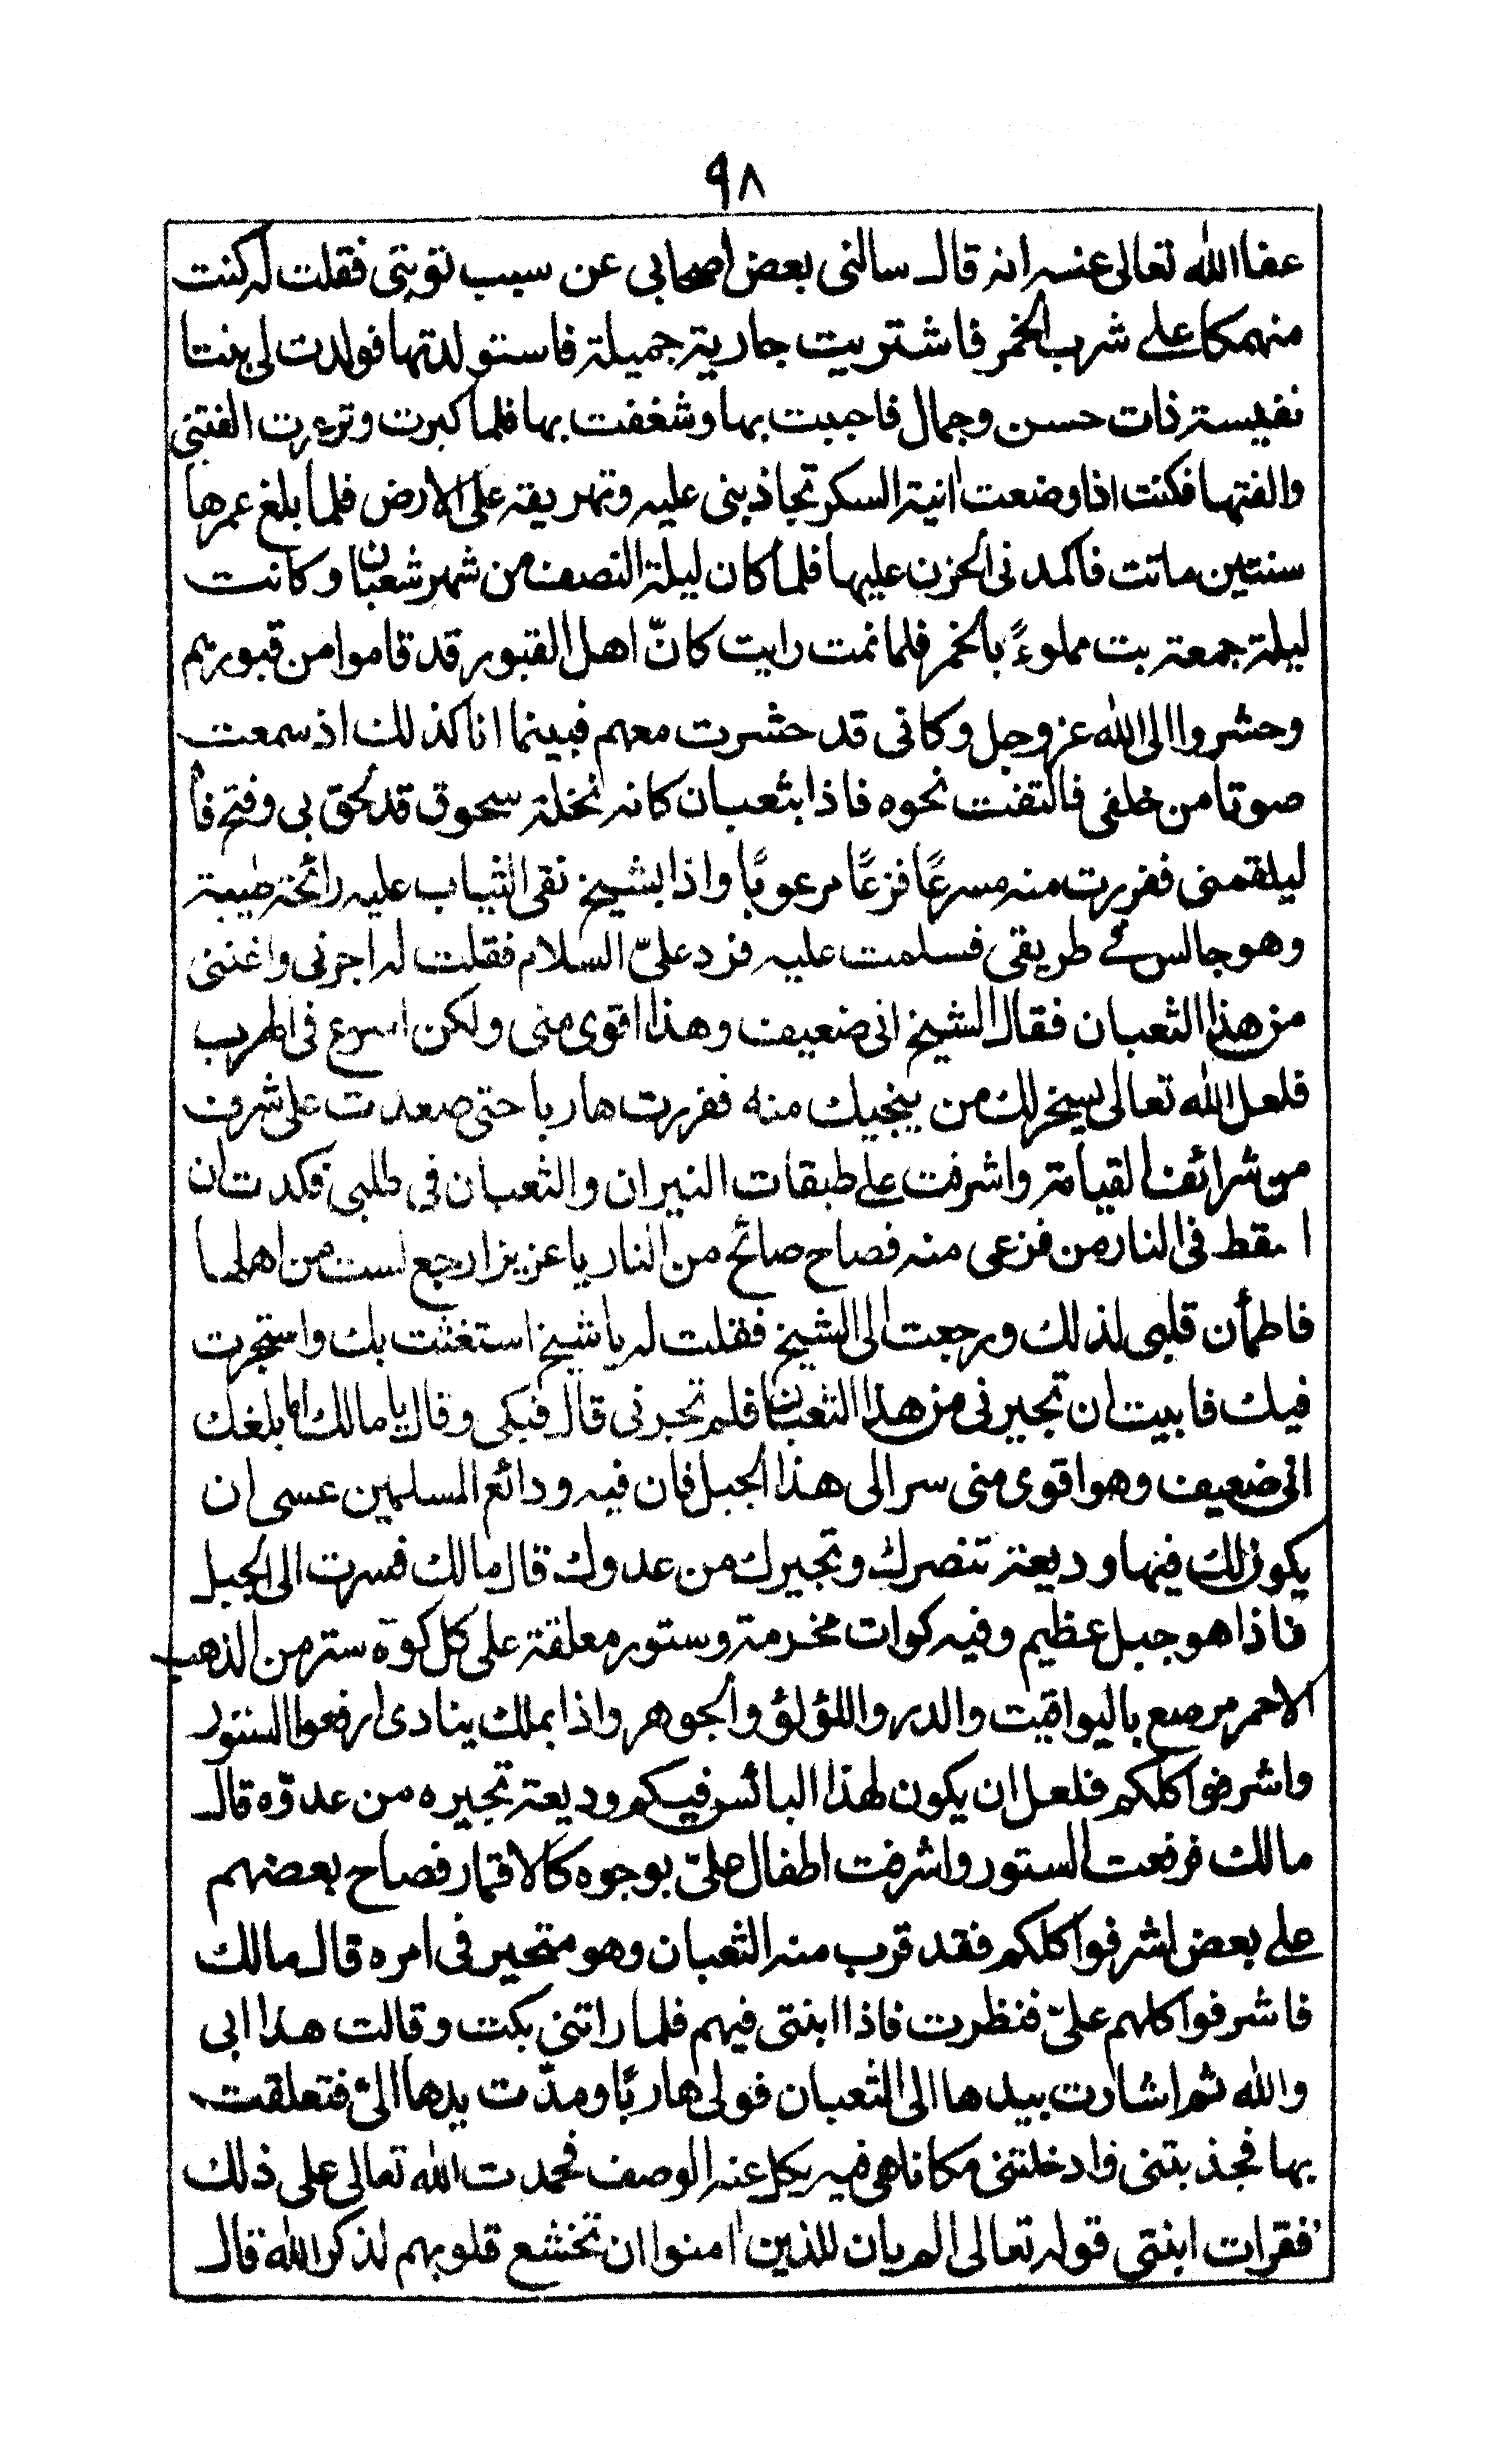 ٩٨
عفا الله تعالى عنه انه قال سالنى بعض اصحابى عن سبب توبتى فقلت له كنت
منهمكا على شرب الخمر فاشتريت جارية جميلة فاستولدتها فولدت لى بنتا
نفيسة ذات حسن وجمال فاحببت بها وشغفت بها فلما كبرت وترعرت الفتنى
والفتها فكنت اذا وضعت انية السكر تجاذبنى عليه وتهريقه على الارض فلما بلغ عمرها
سنتين ماتت فاكمدنى الحزن عليها فلما كان ليلة النصف من شهر شعبان وكانت
ليلة جمعة بت مملوءً بالخمر فلما نمت رايت كانّ اهل القبور قد قاموا من قبورهم
وحشروا الى الله عز وجل وكانى قد حشرت معهم فبينما انا كذلك اذ سمعت
صوتا من خلفى فالتفت نحوه فاذا بثعبان كانه نخلة سحوق قد لحق بى وفتح فاه
ليلقمنى ففررت منه مسرعًا فزعًا مرعوبًا واذا بشيخ نقى الثياب عليه رائحة طيبة
وهو جالس فى طريقى فسلمت عليه فرد علىّ السلام فقلت له اجرنى واغثنى
من هذا الثعبان فقال الشيخ انى ضعيف وهذا اقوى منى ولكن اسرع فى الهرب
فلعل الله تعالى يسخر لك من ينجيك منه ففررت هاربا حتى صعدت على شرف
من شرائف القيامة واشرفت على طبقات النيران والثعبان فى طلبى فكدت ان
اسقط فى النار من فزعى منه فصاح صائح من النار يا عزيز ارجع لست من اهلها
فاطمأن قلبى لذلك ورجعت الى الشيخ فقلت له يا شيخ استغثت بك واستجرت
فيك فابيت ان تجيرنى من هذا الثعبان فلم تجرنى قال فبكى وقال يا مالك اما بلغك
انى ضعيف وهو اقوى منى سر الى هذا الجبل فان فيه ودائع المسلمين عسى ان
يكون لك فيها وديعة تنصرك وتجيرك من عدوك قال مالك فسرت الى الجبل
فاذا هو جبل عظيم وفيه كوات مخرمة وستور معلقة على كل كوّة ستر من الذهب
الاحمر مرصع باليواقيت والدر واللؤلؤ والجوهر واذا بملك ينادى ارفعوا الستور
واشرفوا كلكم فلعل ان يكون لهذا البائس فيكم وديعة تجيره من عدوّه قال
مالك فرفعت الستور واشرفت اطفال علىّ بوجوه كالاقمار فصاح بعضهم
على بعض اشرفوا كلكم فقد قرب منه الثعبان وهو متحير فى امره قال مالك
فاشرفوا كلهم علىّ فنظرت فاذا ابنتى فيهم فلما راتنى بكت وقالت هذا ابى
والله ثم اشارت بيدها الى الثعبان فولى هاربًا ومدّت يدها الىّ فتعلقت
بها فجذبتنى فادخلتنى مكانا هى فيه يكل عنه الوصف فحمدت الله تعالى على ذلك
فقرات ابنتى قوله تعالى الم يان للذين امنوا ان تخشع قلوبهم لذكر الله قال